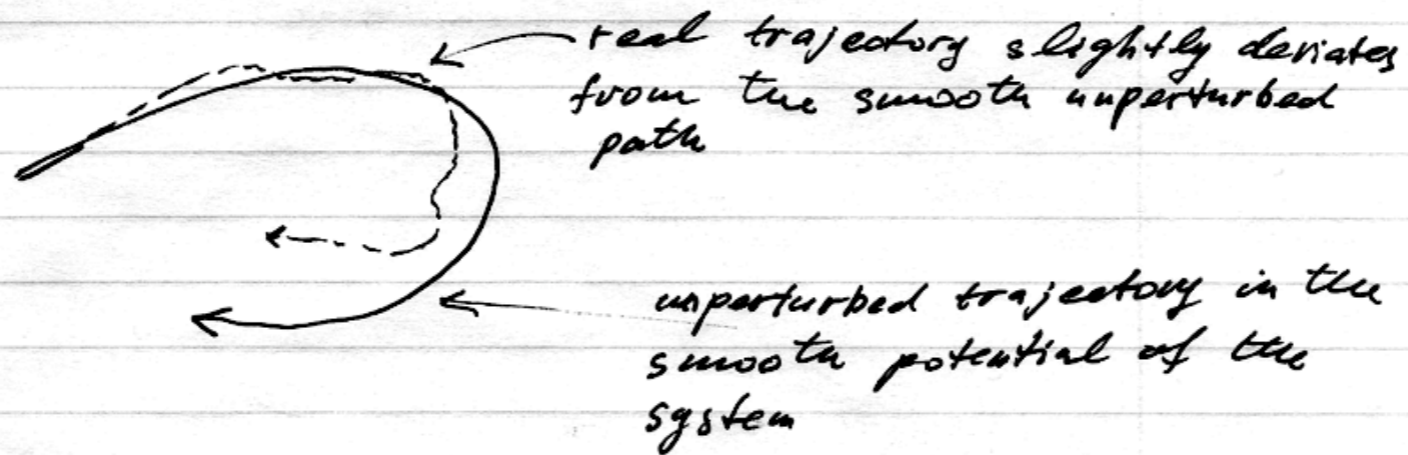 real trajectory slightly deviates
from the smooth unperturbed
path
unperturbed trajectory in the
smooth potential of the
system